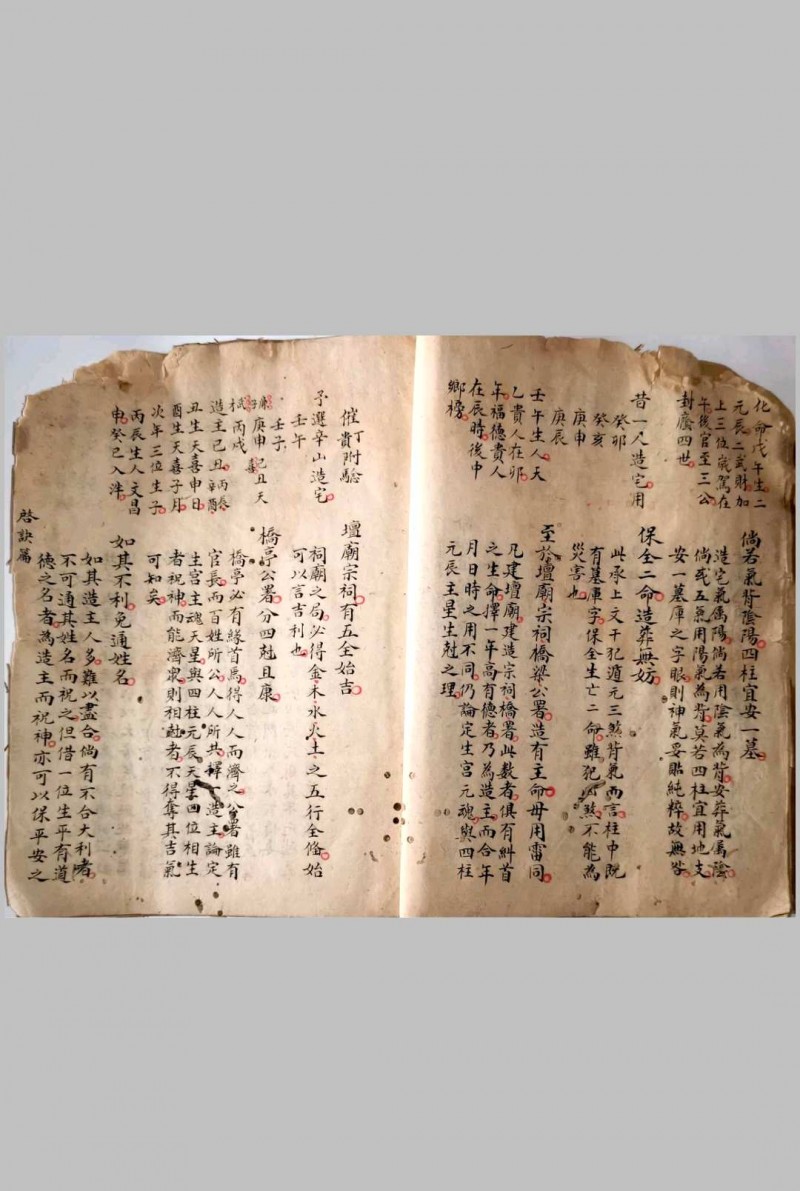 化命戊午生二
元辰二武財加
上三位歲駕在
午後官至三公
封廕四世
昔一人造宅用
癸卯
癸亥
庚申
庚辰
壬午生人天
乙貴人在卯
年福德貴人
在辰時後中
鄉榜
倘若氣背陰陽四柱宜安一墓
造宅氣属陽倘若用陰氣為背安葬氣属陰
倘或五氣用陽氣為背莫若四柱宜用地支
安一墓庫之字眼則神氣妥貼純粹故無咎
保全二命造葬無妨
此承上文干犯遁元三煞背氣而言柱中既
有墓庫字保全生亡二命雖犯煞不能為
災害也
至於壇廟宗祠橋梁公署造有主命毋用雷同
凡建壇廟建造宗祠橋署此数者俱有糾首
之生命擇一年高有德者乃為造主而合年
月日時之用不同仍論定生宮元魂與四柱
元辰主星生尅之理
催丁貴附驗
予選辛山造宅
壬午
壬子
庚申
丙戌
己丑天
喜
造主己丑
丙辰
辛酉
丑生天喜申日
酉生天喜子月
次年三位生子
丙辰生人文昌
申癸巳入泮
壇廟宗祠有五全始吉
祠廟之局必得金木水火土之五行全俻始
可以言吉利也
橋亭公署分四尅且康
橋亭必有緣首焉得人人而濟之公署雖有
官長而百姓所公人人所共擇造主論定
生宮主魂天星與四柱元辰天星四位相生
者祝神而能濟衆則相尅者不得奪其吉氣
可知矣
如其不利免通姓名
如其造主人多難以盡合倘有不合大利者
不可通其姓名而祝之但借一位生平有道
德之名者為造主而祝神亦可以保平安之
啓訣篇